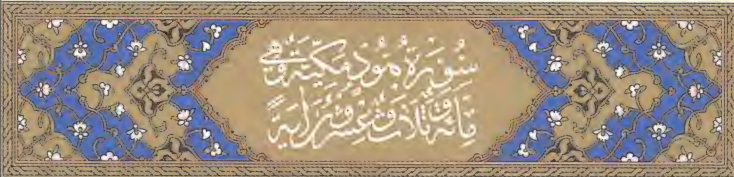 سُورَةُ هُودٍ مَكِّيَّةٌ وَهِيَ
مِائَةٌ وَثَلَاثٌ وَعِشْرُونَ آيَةً